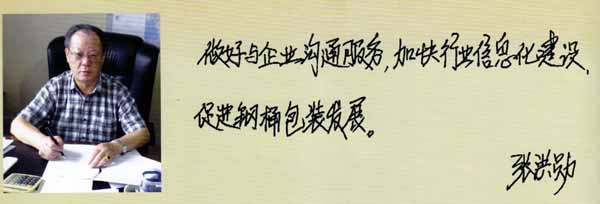 做好与企业沟通服务,加快行业信息化建设,
促进钢桶包装发展。
张洪勋